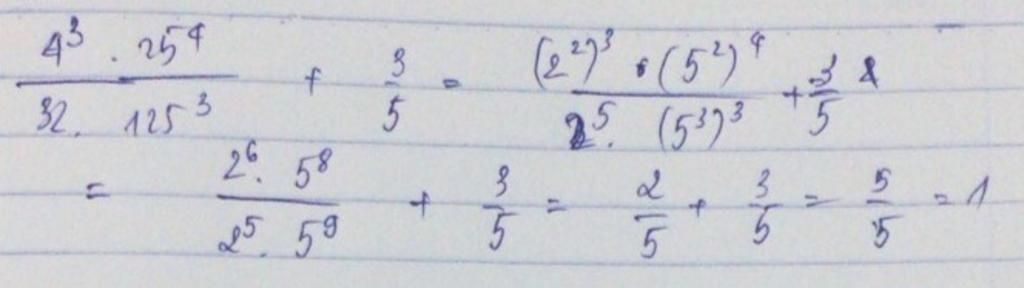 \frac{4^3 . 25^4}{32 . 125^3} + \frac{3}{5} = \frac{(2^2)^3 . (5^2)^4}{2^5 . (5^3)^3} + \frac{3}{5}
= \frac{2^6 . 5^8}{2^5 . 5^9} + \frac{3}{5} = \frac{2}{5} + \frac{3}{5} = \frac{5}{5} = 1